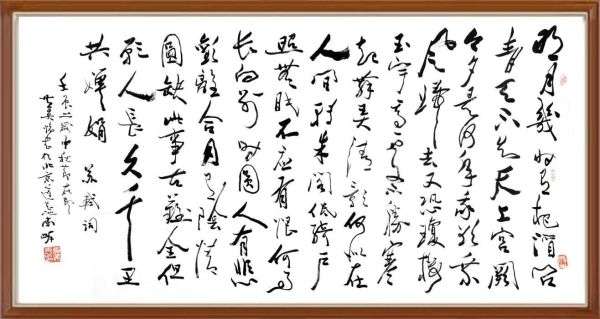 明月幾时有把酒问
青天不知天上宫阙
今夕是何年我欲乘
风歸去又恐瓊楼
玉宇高处不勝寒
起舞弄清影何似在
人间转朱阁低绮户
照无眠不应有恨何事
长向别时圆人有悲
歡離合月有陰晴
圆缺此事古難全但
愿人長久千里
共嬋娟 苏轼词
壬辰之歲中秋節
书於北京